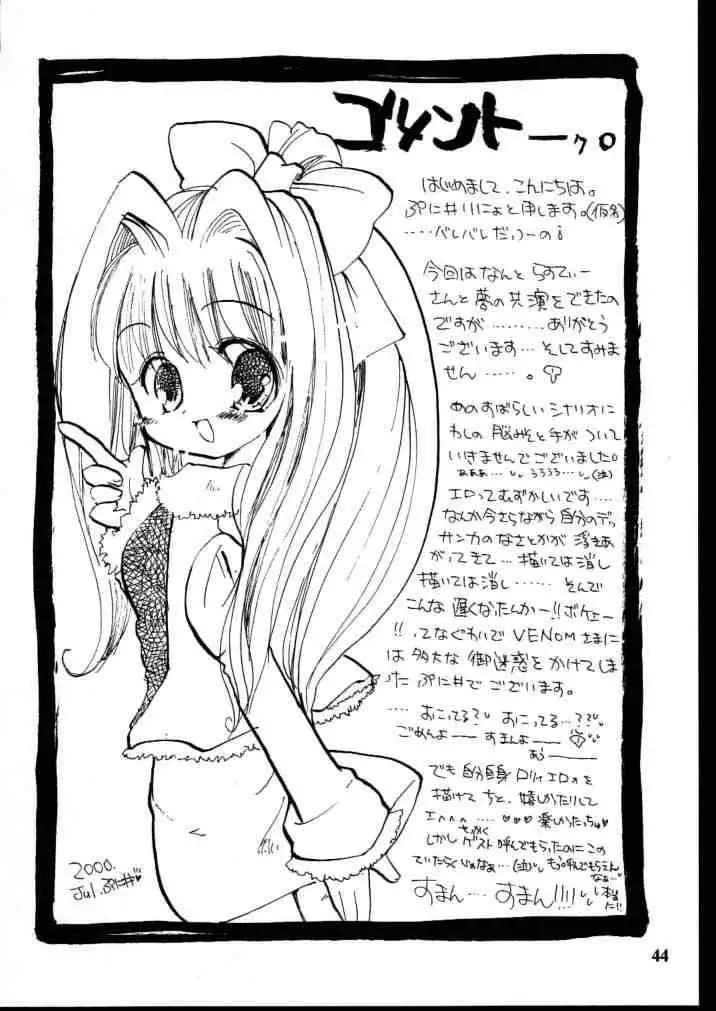 コメントーク。
はじめまして、こんにちは。
ぷに井川にょと申します。(仮名)
‥‥バレバレだっつーの!
今回はなんと らすてぃー
さんと夢の共演をできたの
ですが………ありがとう
ございます…そしてすみま
せん……。
あのすばらしいシナリオに
わしの脳みそと手がついて
いきませんでございました。
あああ… うううう…(泣)
エロってむずかしいです‥‥
なんか今さらながら自分のデッ
サンカのなさとかが浮きあ
がってきて…描いては消し
描いては消し…… そんで
こんな遅くなったんかー!!ボケェー
!!ってなぐあいで VENOMさまに
は多大な御迷惑をかけてしま
った ぷに井でございます。
‥‥おこってる? おこってる…??
ごめんよー すまんよー
あうー
でも自分自身ロリィエロを
描けて ちと、嬉しかったりして
エヘヘ‥‥♥♥♥楽しかったっちゅ♥
しかし せっかくゲスト呼んでもらったのにこの
ていたらくじゃなぁ…(泣) もう呼んでもらえん
なぁ…
すまん‥‥すまん!!!! 本当だ!!
2000.
Jul.ぷに井♥
44